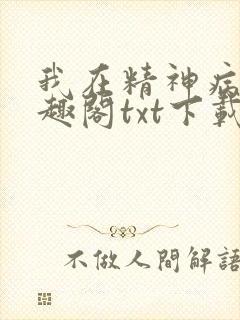 我在精神病
趣閣txt下載
不做人間解語